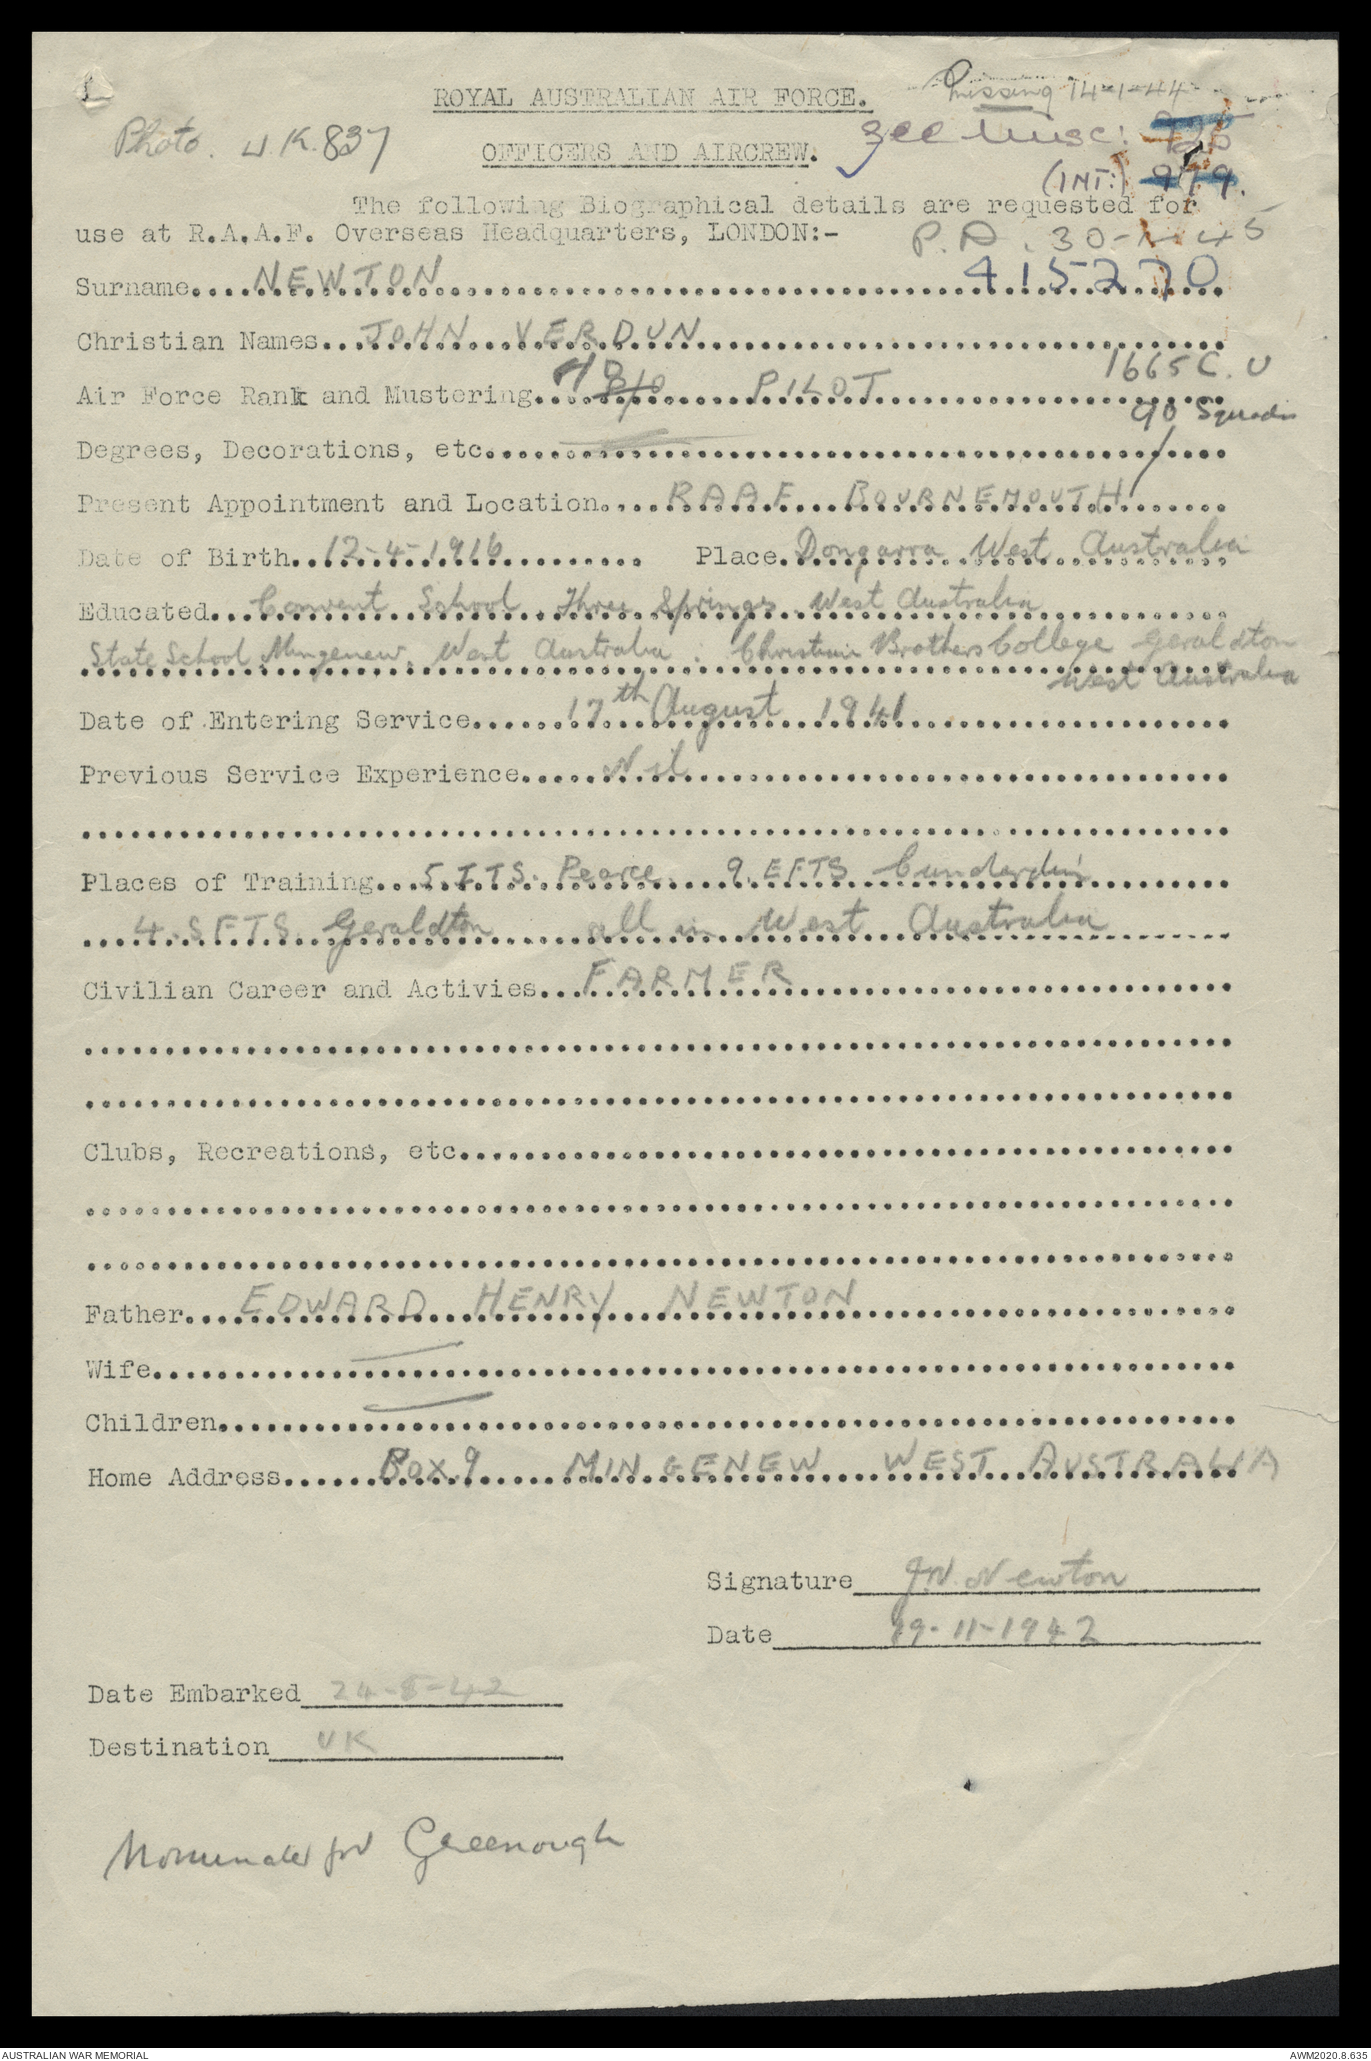 ROYAL AUSTRALIAN AIR FORCE.
Missing 14-1-44
Photo. U.K. 837
OFFICERS AND AIRCREW.
See Misc:
(INT:) 979.
The following Biographical details are requested for
use at R.A.A.F. Overseas Headquarters, LONDON:-
P.D. 30-1-45
Surname....NEWTON 415270
Christian Names...JOHN VERDUN
1665 C.U
Air Force Rank and Mustering... PILOT
90 Squadn
Degrees, Decorations, etc.
Present Appointment and Location....RAAF BOURNEMOUTH
Date of Birth..12-4-1916 Place.Dongarra West Australia
Educated...Convent School Three Springs West Australia
State School Mingenew. West Australia. Christian Brothers College Geraldton
West Australia
Date of Entering Service....17th August 1941
Previous Service Experience....Nil
Places of Training...5 ITS. Pearce. 9. EFTS Cunderdin
4. SFTS Geraldton all in West Australia
Civilian Career and Activies...FARMER
Clubs, Recreations, etc.
Father....EDWARD HENRY NEWTON
Wife
Children
Home Address.....Box 9 MINGENEW WEST AUSTRALIA
Signature J.V. Newton
Date 19-11-1942
Date Embarked 24-8-42
Destination UK
Nominated for Greenough
AUSTRALIAN WAR MEMORIAL AWM2020.8.635